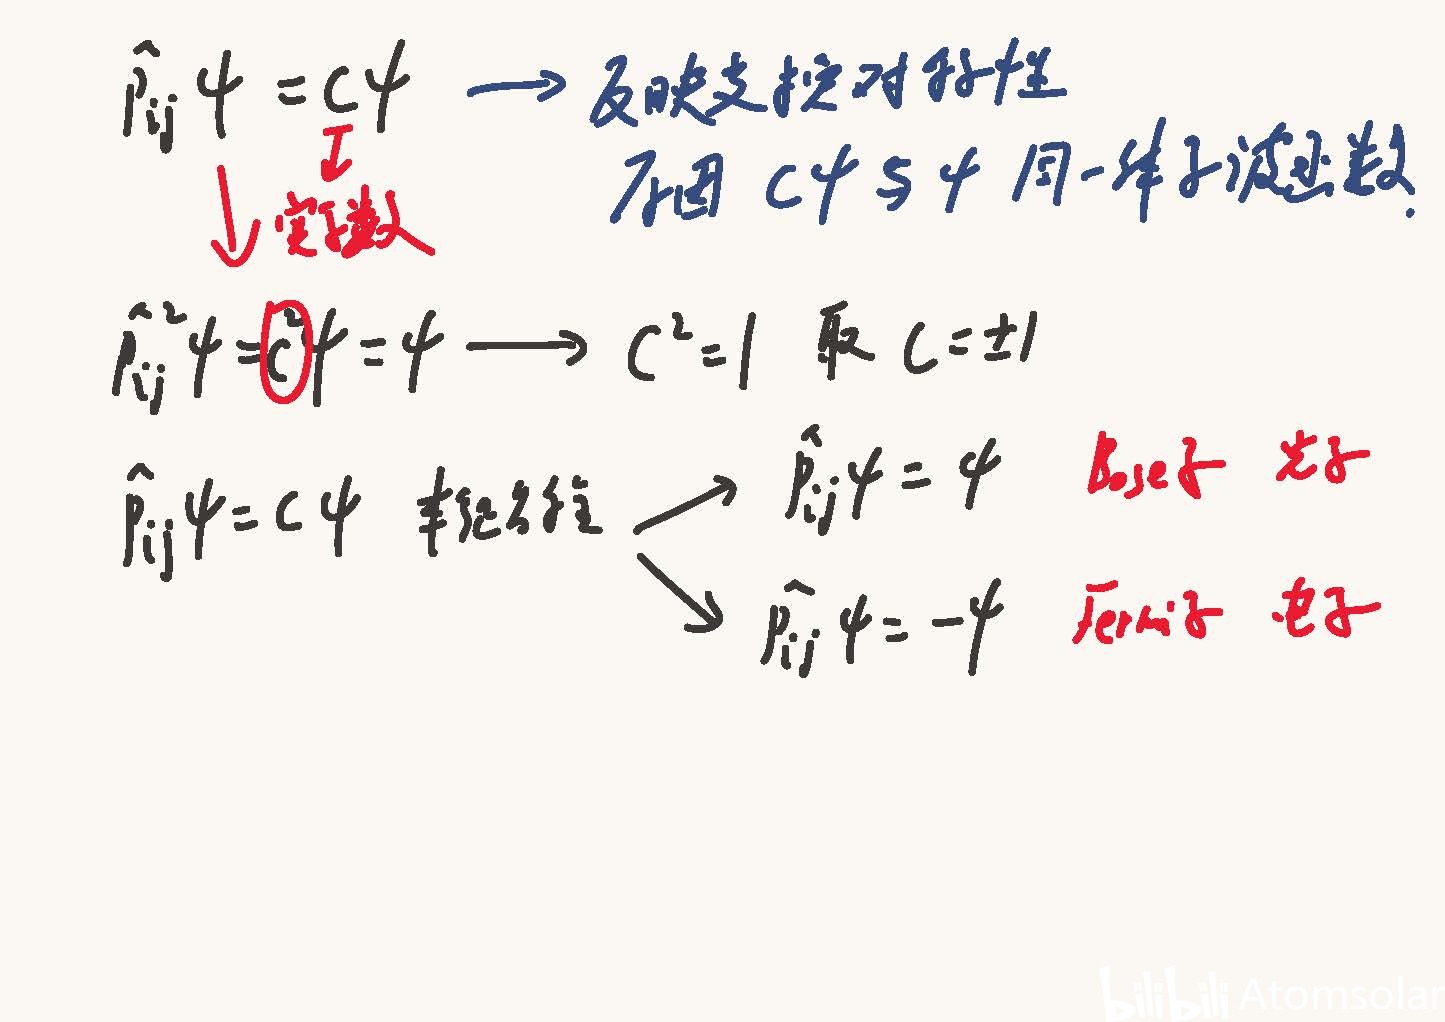 P̂ij ψ = Cψ → 反映交换对称性
原因 Cψ与ψ 同一量子波函数.
实数
P̂ij² ψ = C²ψ = ψ → C² = 1 取 C = ±1
P̂ij ψ = Cψ
P̂ij ψ = ψ Bose子 光子
P̂ij ψ = -ψ Fermi子 电子
bilibili Atomsolar